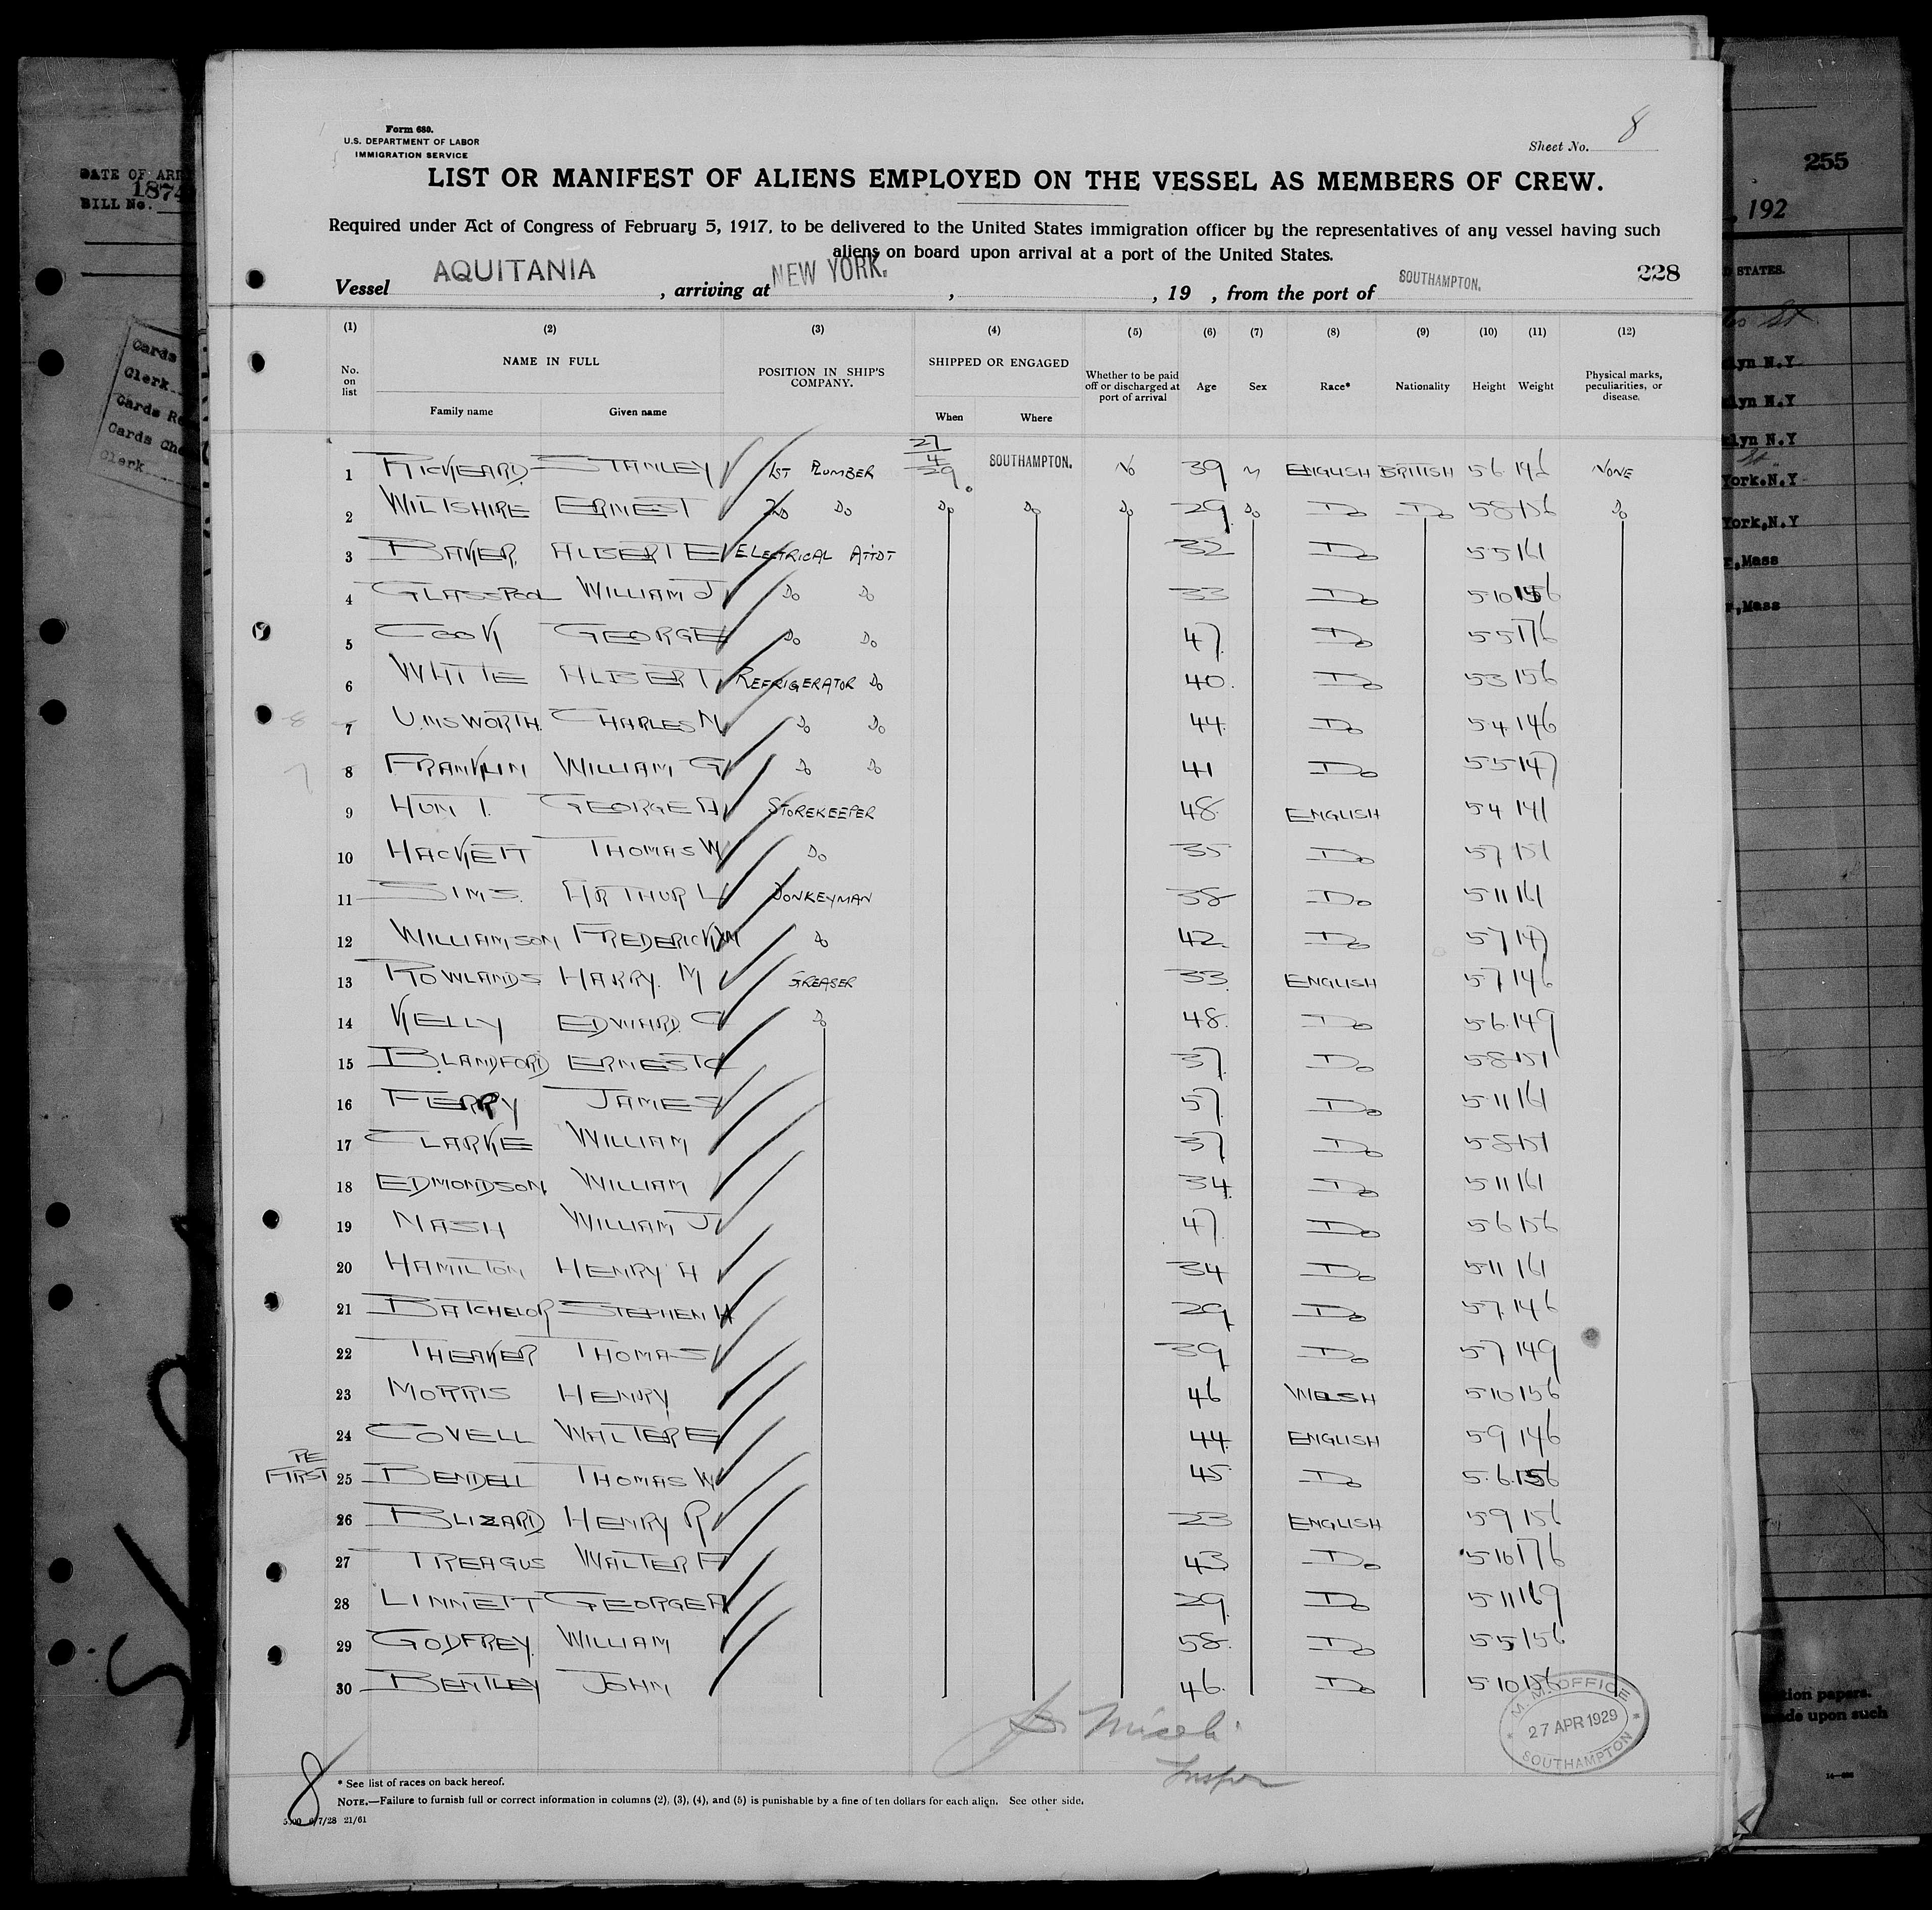 Form 680.
U.S. DEPARTMENT OF LABOR
IMMIGRATION SERVICE
Sheet No. 8
LIST OR MANIFEST OF ALIENS EMPLOYED ON THE VESSEL AS MEMBERS OF CREW.
Required under Act of Congress of February 5, 1917, to be delivered to the United States immigration officer by the representatives of any vessel having such
aliens on board upon arrival at a port of the United States.
228
Vessel AQUITANIA , arriving at NEW YORK. , , 19 , from the port of SOUTHAMPTON.
(1) (2) (3) (4) (5) (6) (7) (8) (9) (10) (11) (12)
No. on list NAME IN FULL POSITION IN SHIP'S COMPANY. SHIPPED OR ENGAGED Whether to be paid off or discharged at port of arrival Age Sex Race* Nationality Height Weight Physical marks, peculiarities, or disease.
Family name Given name When Where
1 RICKEARD STANLEY 1ST PLUMBER 27/4/29. SOUTHAMPTON. No 39 M ENGLISH BRITISH 5 6 146 NONE
2 WILTSHIRE ERNEST 2ND Do Do Do Do 29 Do Do Do 5 8 156 Do
3 BAKER ALBERT E ELECTRICAL ATTDT 32 Do 5 5 161
4 GLASSPOOL WILLIAM J Do Do 33 Do 5 10 156
5 COOK GEORGE Do Do 47 Do 5 5 176
6 WHITE ALBERT REFRIGERATOR Do 40 Do 5 3 156
7 UNSWORTH CHARLES N Do Do 44 Do 5 4 146
8 FRANKLIN WILLIAM G Do Do 41 Do 5 5 147
9 HUNT GEORGE A STOREKEEPER 48 ENGLISH 5 4 141
10 HACKETT THOMAS W Do 35 Do 5 7 151
11 SIMS. ARTHUR L DONKEYMAN 38 Do 5 11 161
12 WILLIAMSON FREDERICK Do 42 Do 5 7 147
13 ROWLANDS HARRY. M GREASER 33 ENGLISH 5 7 146
14 KELLY EDWARD. C Do 48 Do 5 6 149
15 BLANDFORD ERNEST C 37 Do 5 8 151
16 FERRY JAMES 57 Do 5 11 161
17 CLARKE WILLIAM 37 Do 5 8 151
18 EDMONDSON WILLIAM 34 Do 5 11 161
19 NASH WILLIAM J 47 Do 5 6 156
20 HAMILTON HENRY H 34 Do 5 11 161
21 BATCHELOR STEPHEN H 29 Do 5 7 146
22 THEAKER THOMAS 39 Do 5 7 149
23 MORRIS HENRY 46 WELSH 5 10 156
24 COVELL WALTER E 44 ENGLISH 5 9 146
RE
FIRST 25 BENDELL THOMAS W 45 Do 5 6 156
26 BLIZARD HENRY R 23 ENGLISH 5 9 156
27 TREAGUS WALTER F 43 Do 5 10 176
28 LINNETT GEORGE A 29 Do 5 11 169
29 GODFREY. WILLIAM 58 Do 5 5 156
30 BENTLEY JOHN 46 Do 5 10 156
M.M. OFFICE
27 APR 1929
SOUTHAMPTON
8
* See list of races on back hereof.
NOTE.—Failure to furnish full or correct information in columns (2), (3), (4), and (5) is punishable by a fine of ten dollars for each alien. See other side.
21/61
DATE OF ARR
1874
BILL No.
Cards
Clerk
Cards Re
Cards Che
Clerk
255
, 192
STATES.
lyn N.Y
lyn N.Y
klyn N.Y
York.N.Y
York,N.Y
,Mass
,Mass
tion papers.
ade upon such